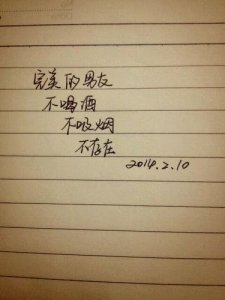 完美的男友
不喝酒
不吸烟
不存在
2014.2.10